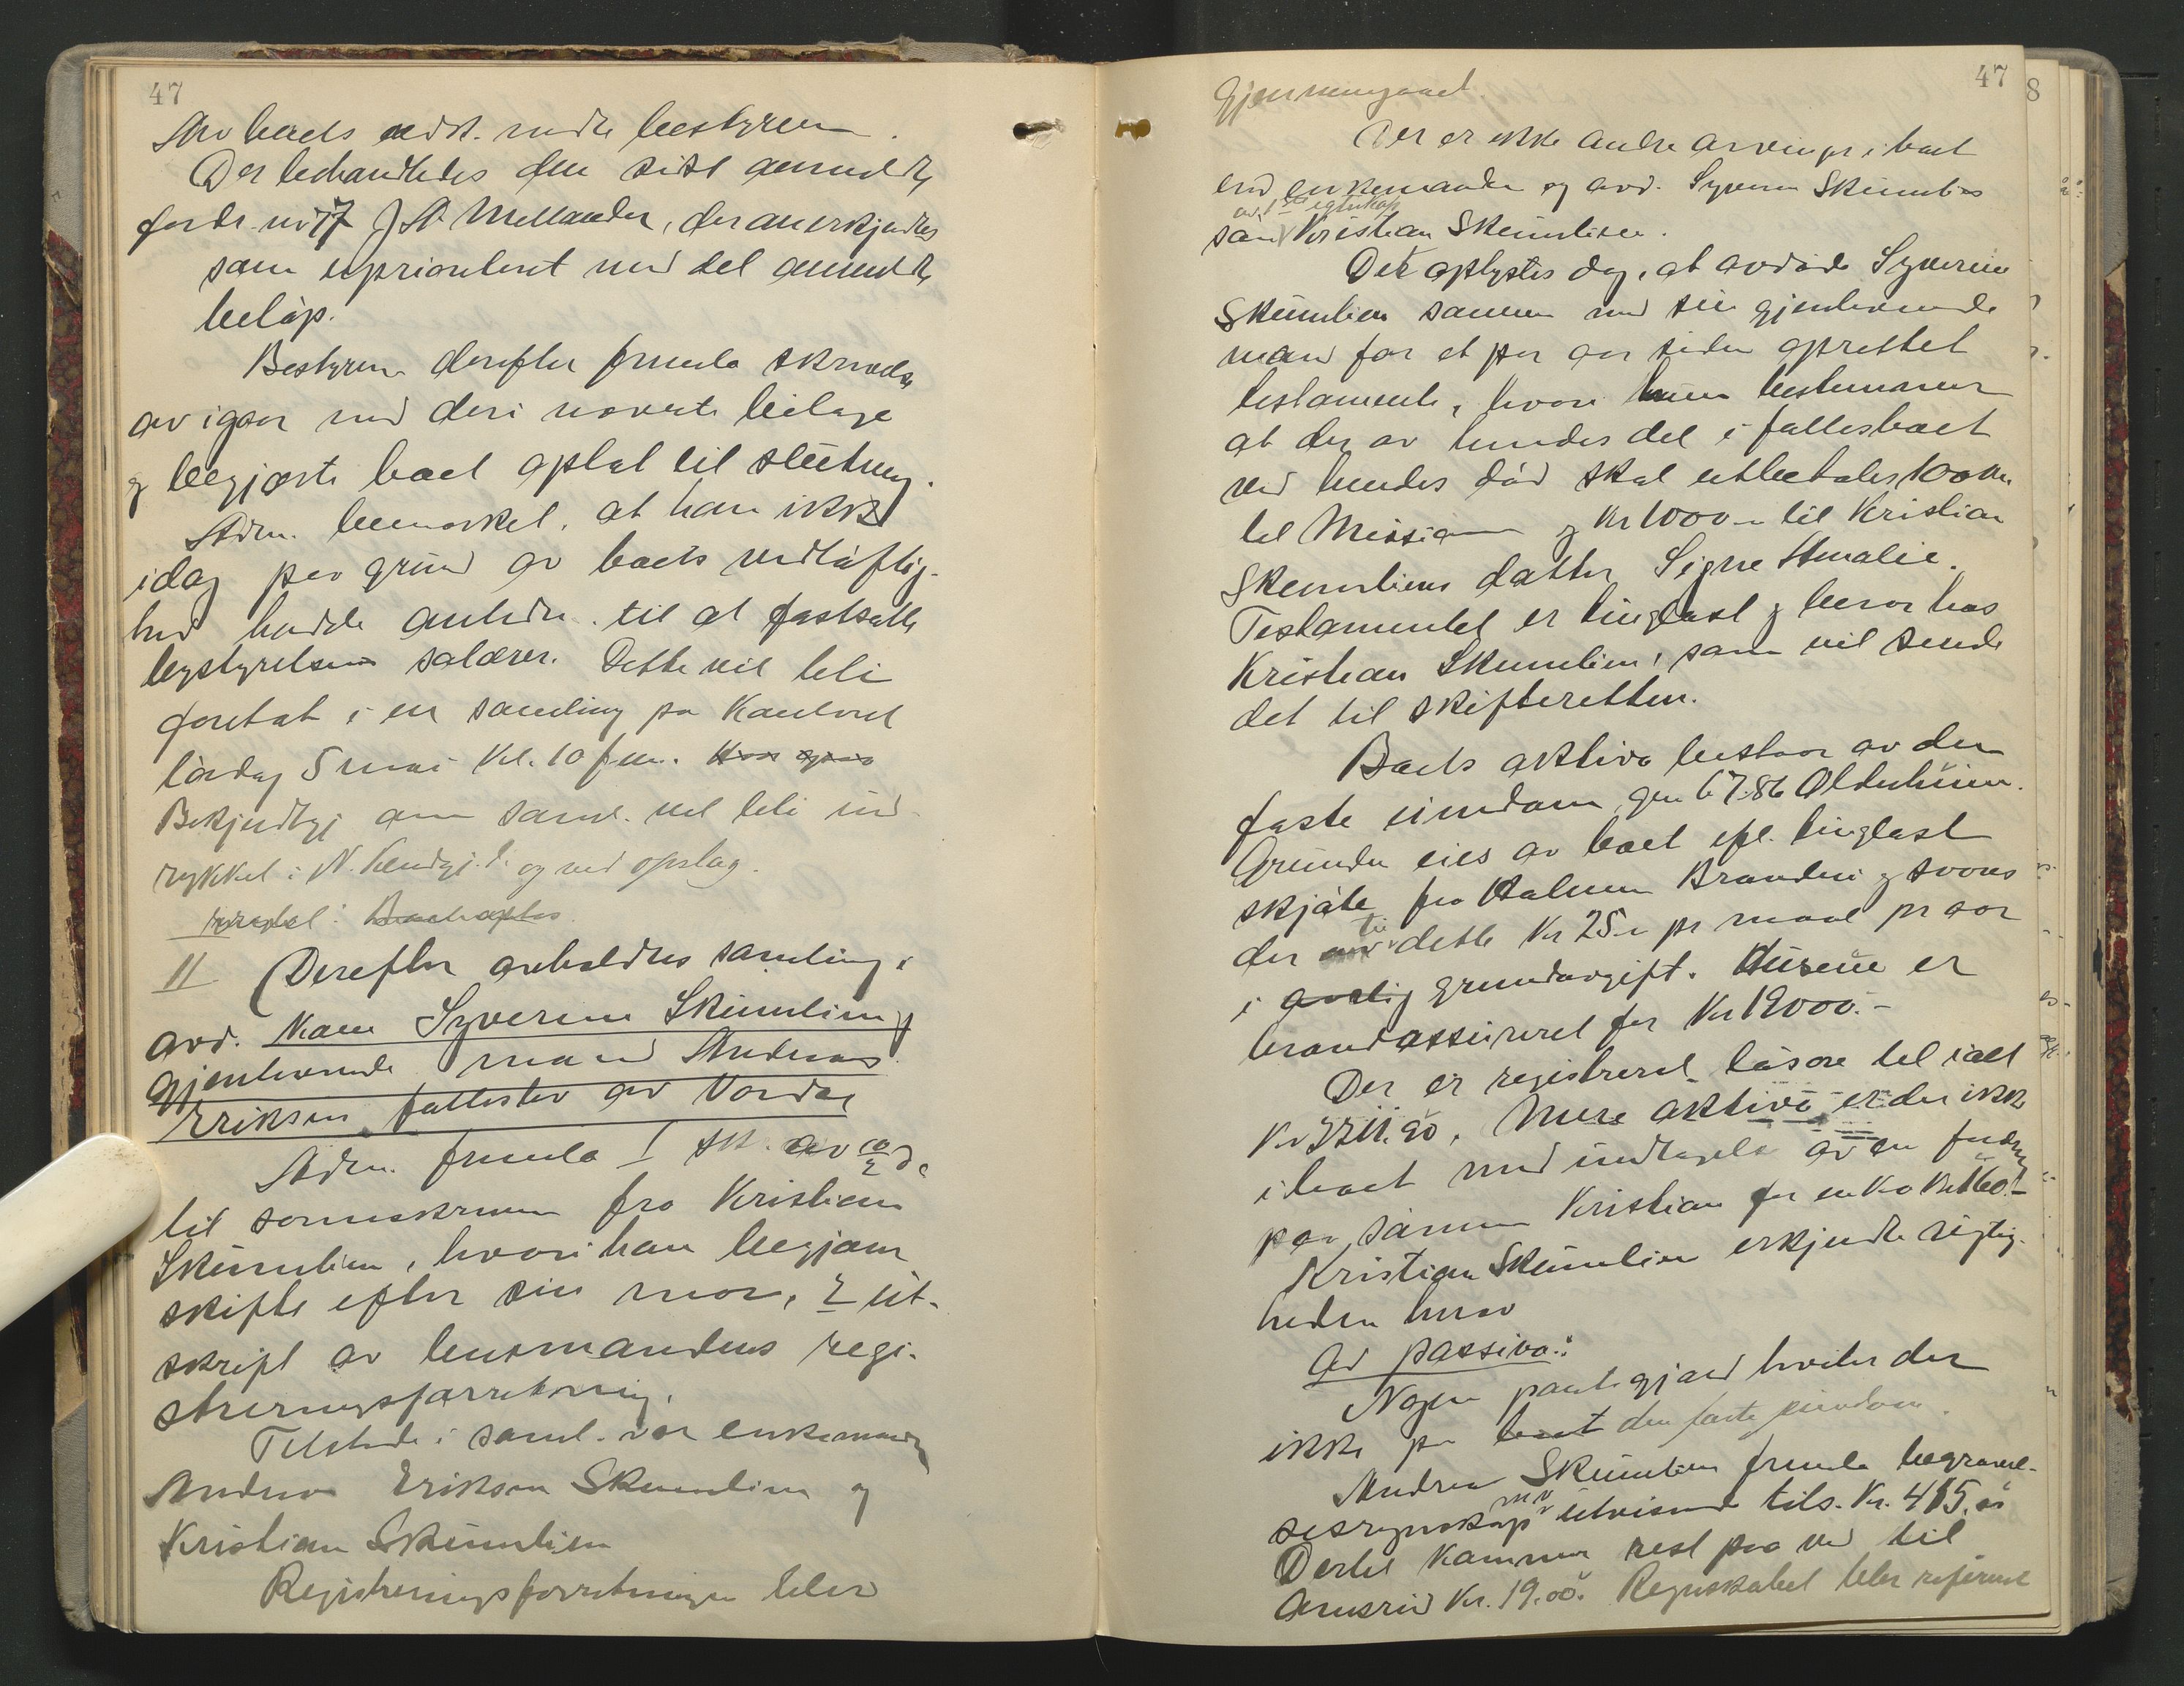 47
Der behandledes den sist anmeldte
fordr. nr 77 J A Mellander, der anerkjendtes
som uprioritert med det anmeldte
beløp.
Bestyreren derefter fremla skrivelse
av igaar med deri nævnte bilage
og begjærte boet optat til slutning.
Adm. bemerket, at han ikke
idag paa grund av boets vidløftig-
het hadde anledn. til at fastsætte
bestyrelsens salærer. Dette vil bli
foretat i en samling pa Kontoret
lørdag 5 mai Kl. 10 fm.
Bekjendtgj om saml. vil bli ind-
rykket i N. Kundgj.t. og ved opslag.
II Derefter avholdtes samling i
avd. Kone Syverine Skumlien og
gjenlevende mand Andreas
Eriksen fællesbo av Vardal
Adm. fremla 1 skr. av 10/2 d.a
til sorenskriveren fra Kristian
Skumlien, hvori han begjærer
skifte efter sin mor, 2 ut-
skript av lensmandens regi-
streringsforretning.
Tilstede i saml. var enkemanden
Andreas Eriksen Skumlien og
Kristian Skumlien
Registreringsforretningen blev
47
8
gjennemgaaet.
Der er ikke andre arvinger i boet
end enkemanden og avd. Syverine Skumliens
av 1ste egteskap
søn Kristian Skumlien.
Det oplystes dog, at avdøde Syverine
Skumlien sammen med sin gjenlevende
mand for et par aar siden oprettet
testamente, hvori hun bestemmer
at der av hendes del i fællesboet
ved hendes død skal utbetales 100 kr.
til Missionen og Kr 1000 - til Kristian
Skumliens datter Signe Amalie.
Testamentet er tinglæst og beror hos
Kristian Skumlien, som vil sende
det til skifteretten.
Boets aktiva bestaar av den
faste eiendom, gnr 67.86 Oldenheim.
Grunden eies av boet efl. tinglæst
skjøte fra Halmer Branderi og svares
der til dette Kr 25.- pr maal pr aar
i aarlig grundavgift. Husene er
brandassureret for Kr 19000.-
Der er registreret løsøre til ialt
Mere aktiva er der ikke
i boet med undtagelse av en fordring
paa sønnen Kristian
Kristian Skumlien erkjendte rigtig-
heden herav
Ad passiva:
Nogen pantegjæld hviler der
ikke pa boet den faste eiendom.
Andreas Skumlien fremla begravel-
sesregnskap utvisende tils. Kr. 415.00
Dertil kommer rest paa ved til
Kr. 19.00. Regnskabet blev referert